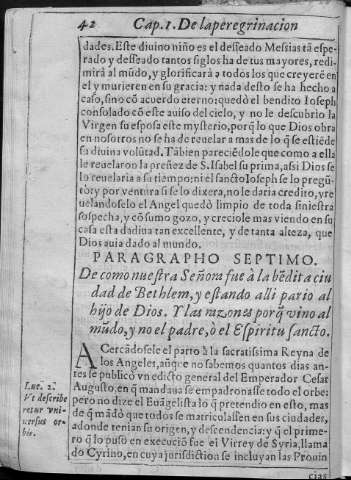 42 Cap. 1. De la peregrinacion
dades. Este diuino niño es el desseado Messias tã espe-
rado y desseado tantos siglos ha de tus mayores, redi-
mirà al mũdo, y glorificarà a todos los que creyerẽ en
el y murieren en su gracia: y nada desto se ha hecho a
caso, sino cõ acuerdo eterno: quedò el bendito Ioseph
consolado cõ este auiso del cielo, y no le descubrio la
Virgen su esposa este mysterio, porq̃ lo que Dios obra
en nosotros no se ha de reuelar a mas de lo q̃ se estiẽde
sa diuina volũtad. Tãbien pareciẽdole que como a ella
le reuelaroo la preñez de S. Isabel su prima, assi Dios se
lo reuelaria a su tiempo: ni el sancto Ioseph se lo pregũ-
tò: y por ventura si se lo dixera, no le daria credito, y re
uelandoselo el Angel quedò limpio de toda siniestra
sospecha, y cõ sumo gozo, y creciole mas viendo en su
casa esta dadiua tan excelente, y de tanta alteza, que
Dios auia dado al mundo.
PARAGRAPHO SEPTIMO.
De como nuestra Señora fue à la bẽdita ciu
dad de Bethlem, y estando alli pario al
hijo de Dios. Y las razones porq̃ vino al
mũdo, y no el padre, ò el Espiritu sancto.
ACercãdosele el parto à la sacratissima Reyna de
los Angeles, aũq̃e no sabemos quantos dias an-
tes se publicò vn edicto general del Emperador Cesar
Augusto, en q̃ mandaua se empadronasse todo el orbe:
pero no dize el Euãgelista lo q̃ pretendio en esto, mas
de q̃ mãdò que todos se matriculassen en sus ciudades,
adonde tenian su origen, y descendencia: y q̃ el prime-
ro q̃ lo puso en execuciõ fue el Virrey de Syria, llama
do Cyrino, en cuya jurisdiction se incluyan las Prouin
cias
Luc. 2.
Vt describe
retur vni-
uersus or-
bis.